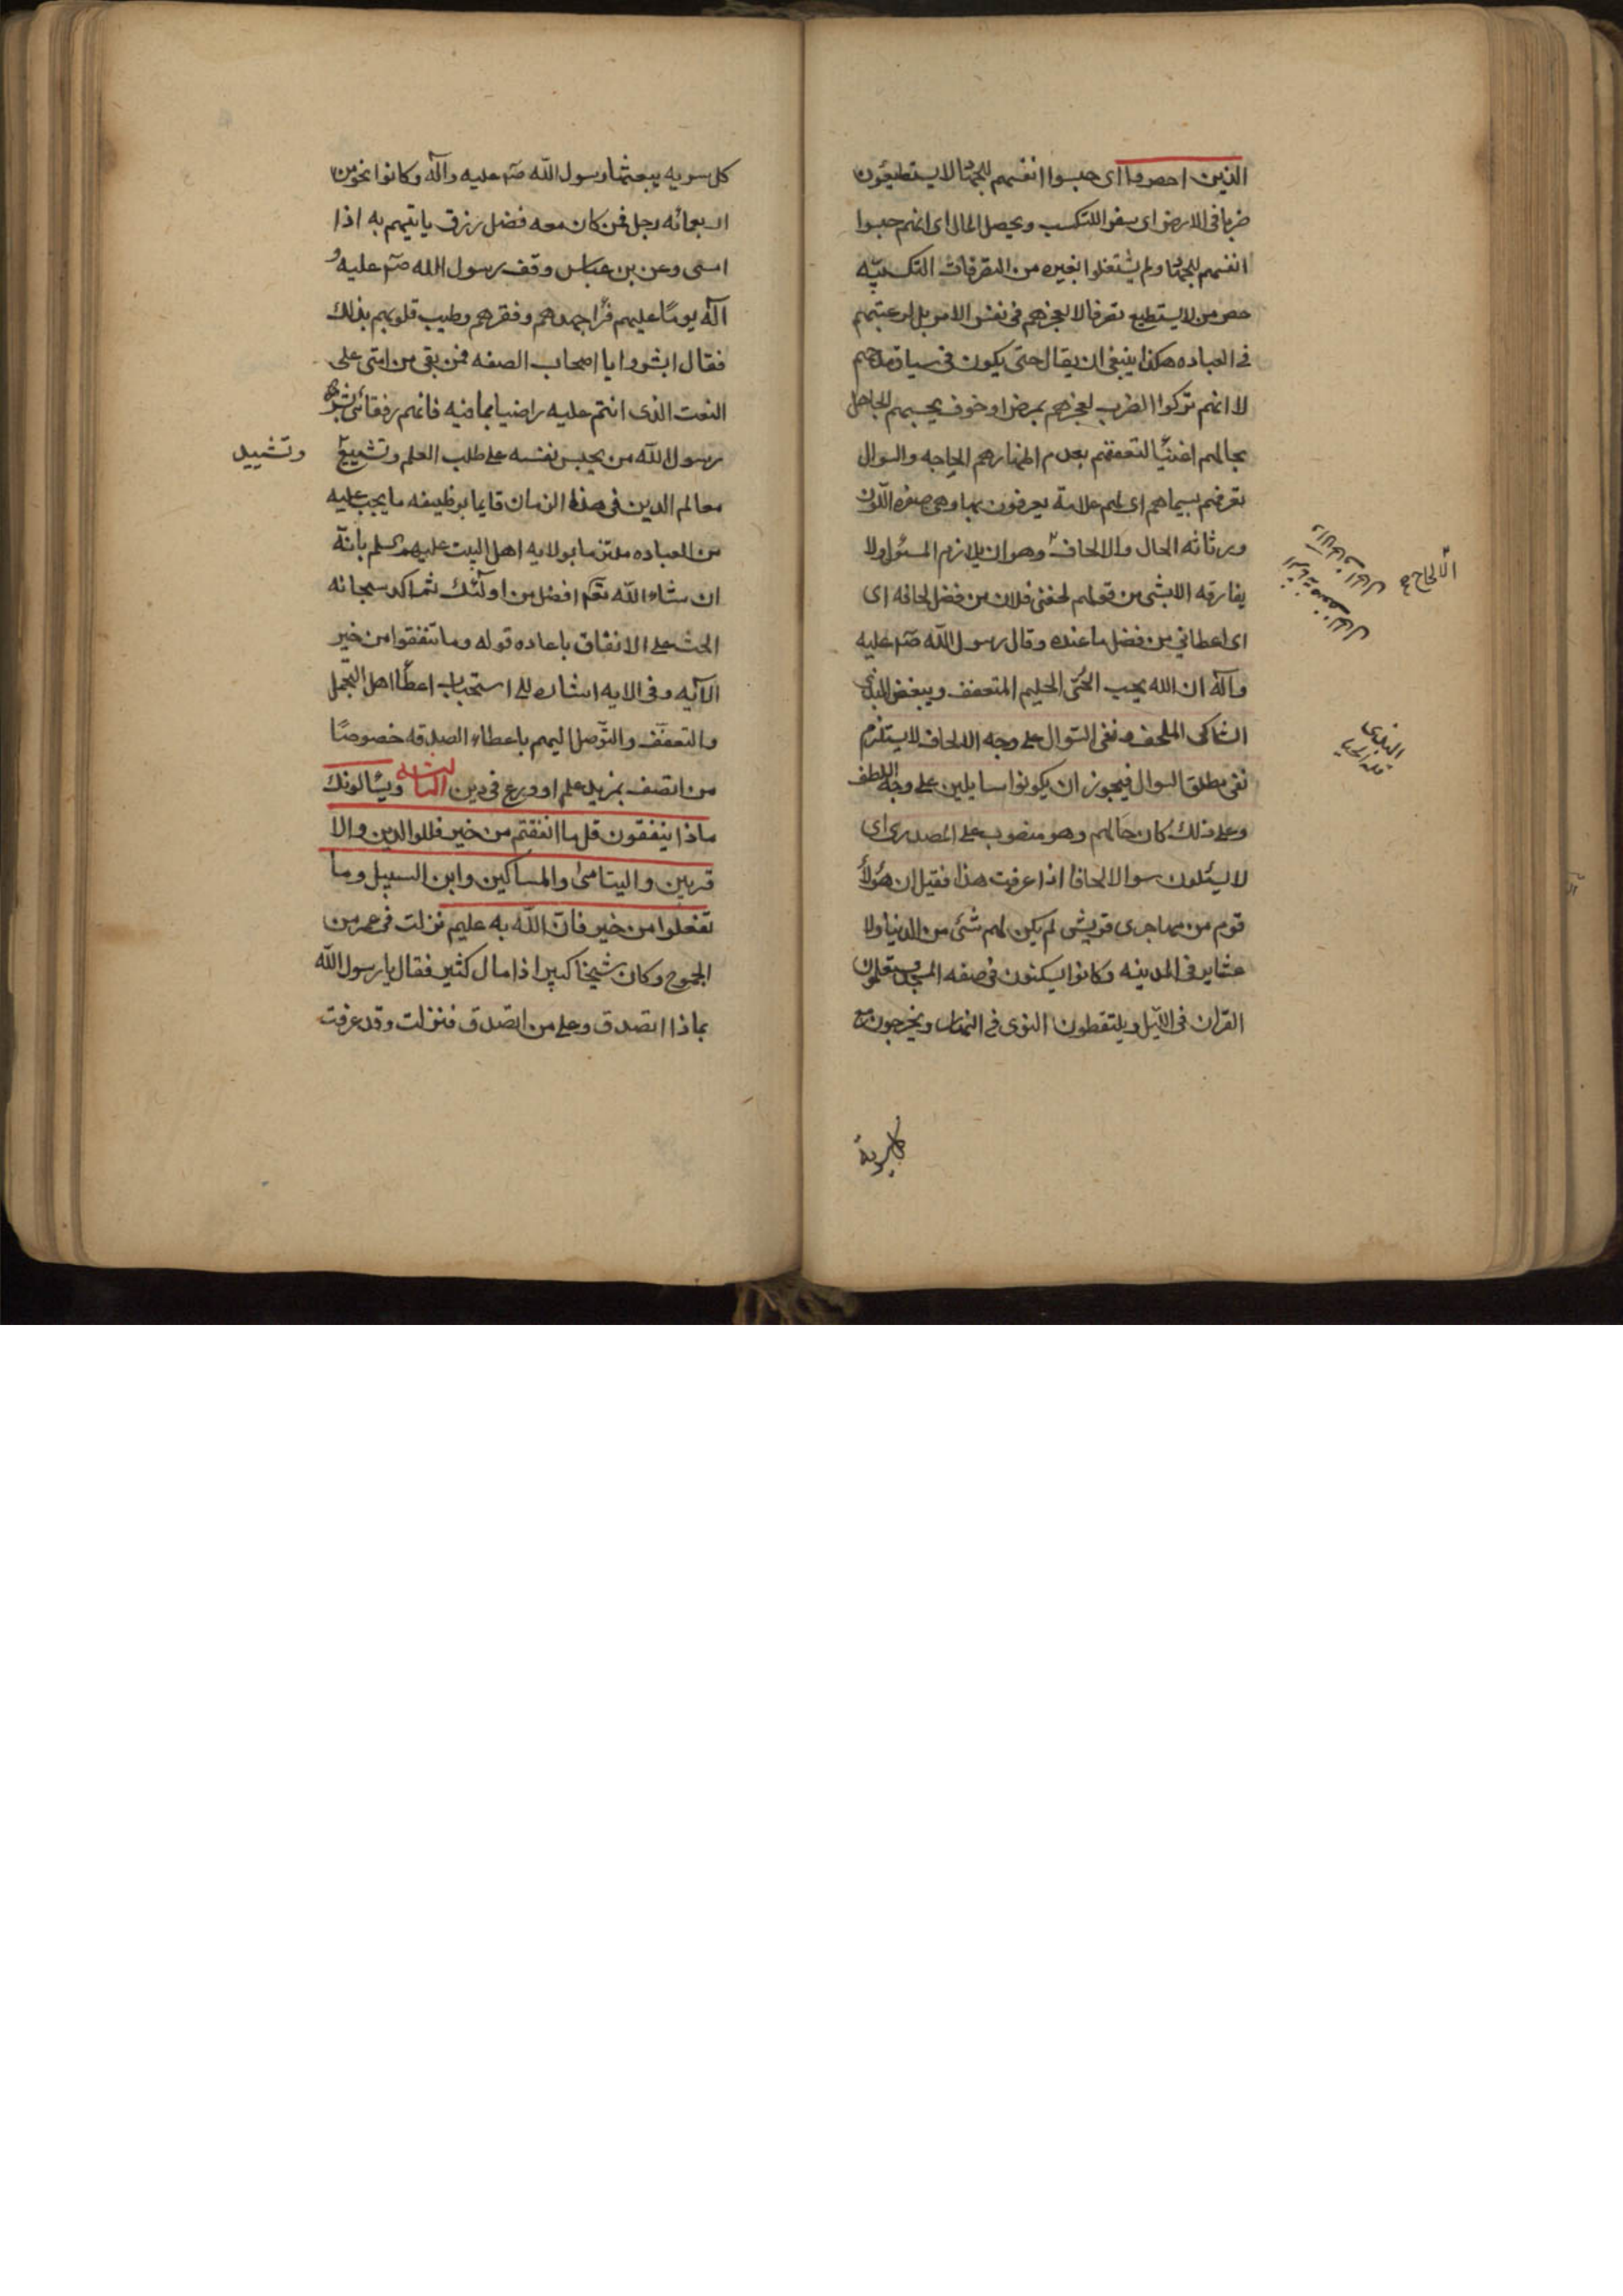 الذين احصروا اى حبسوا انفسهم للجهاد لا يستطيعون
ضربا فى الارض اى سفرا للتكسب و يحصل المال اى انهم حبسوا
انفسهم للجهاد و لم يشتغلوا بغيره من التصرفات التكسبيّه
من لا يستطيع تصرفا لا لعجزهم فى نفس الامر بل لرغبتهم
فى العباده هكذا ينبغى ان يقال حتى يكون فى سياق مدحهم
لا انهم تركوا الضرب لعجزهم بمرض او خوف يحسبهم الجاهل
بحالهم اغنيا لتعففهم بعدم اظهارهم الحاجه والسوال
تعرفهم بسيماهم اى لهم علامة يعرفون بها وهى صفره اللّون
ورثاثه الحال والالحاف وهو ان يلازم المسئول ولا
يفارقه الا بشى من قولهم لحفنى فلان من فضل لحافه اى
اى اعطانى من فضل ما عنده وقال رسول اللّه صم عليه
وآله ان الله يحب الحىّ الحليم المتعفف ويبغض البذى
الشاكى الملحف و نفى السّوال على وجه الالحاف لا يستلزم
نفى مطلق السوال فيجوز ان يكونوا سايلين على وجه اللطف
وعلى ذلك كان حالهم وهو منصوب على المصدرى اى
لا يسئلون سوالا الحافا اذا عرفت هذا فقيل ان هؤلأ
قوم من مهاجرى قريش لم يكن لهم شئ من الدنيا ولا
عشاير فى المدينه وكانوا يسكنون فى صفه المسجد ويتعلمون
القران فى اللّيل ويلتقطون النوى فى النهار ويخرجون مع
الالحاح
البذى
قلة الحيا
كل سريه
كل سريه يبعثها رسول اللّه صم عليه وآله وكانوا نحو من
اربعمائه رجل فمن كان معه فضل رزق ياتيهم به اذا
امسى وعن بن عباس وقف رسول الله صم عليه و
آله يومًا عليهم فرأ جهدهم و فقرهم وطيب قلوبهم بذلك
فقال ابشروا يا اصحاب الصفه فمن بقى من امتى على
النعت الذى انتم عليه راضيا بما فيه فانهم رفقائى
رسول اللّه من يحبس نفسه على طلب العلم و
وتشييد
معالم الدين فى هذا الزمان قايما بوظيفه ما يجب عليه
من العباده ملتزما بولايه اهل البيت عليهم السلم بانّه
ان شاء اللّه تعم افضل من اولئك ثم اكد سبحانه
الحث على الانفاق باعاده قوله وما تنفقوا من خير
الآيه وفى الايه اشاره الى استحباب اعطأ اهل التجمل
والتعفف والتّوصل اليهم باعطاء الصدقه خصوصًا
من اتصف بمزيد علم او ورع فى دين الثالثه ويسٔالونك
ماذا ينفقون قل ما انفقتم من خير فللوالدين والا
قربين واليتامى والمساكين وابن السبيل وما
تفعلوا من خير فانّ اللّه به عليم نزلت فى عمر بن
الجموح وكان شيخا كبيرا ذا مال كثير فقال يا رسول اللّه
بماذا اتصدق وعلى من اتصدق فنزلت وقد عرفت